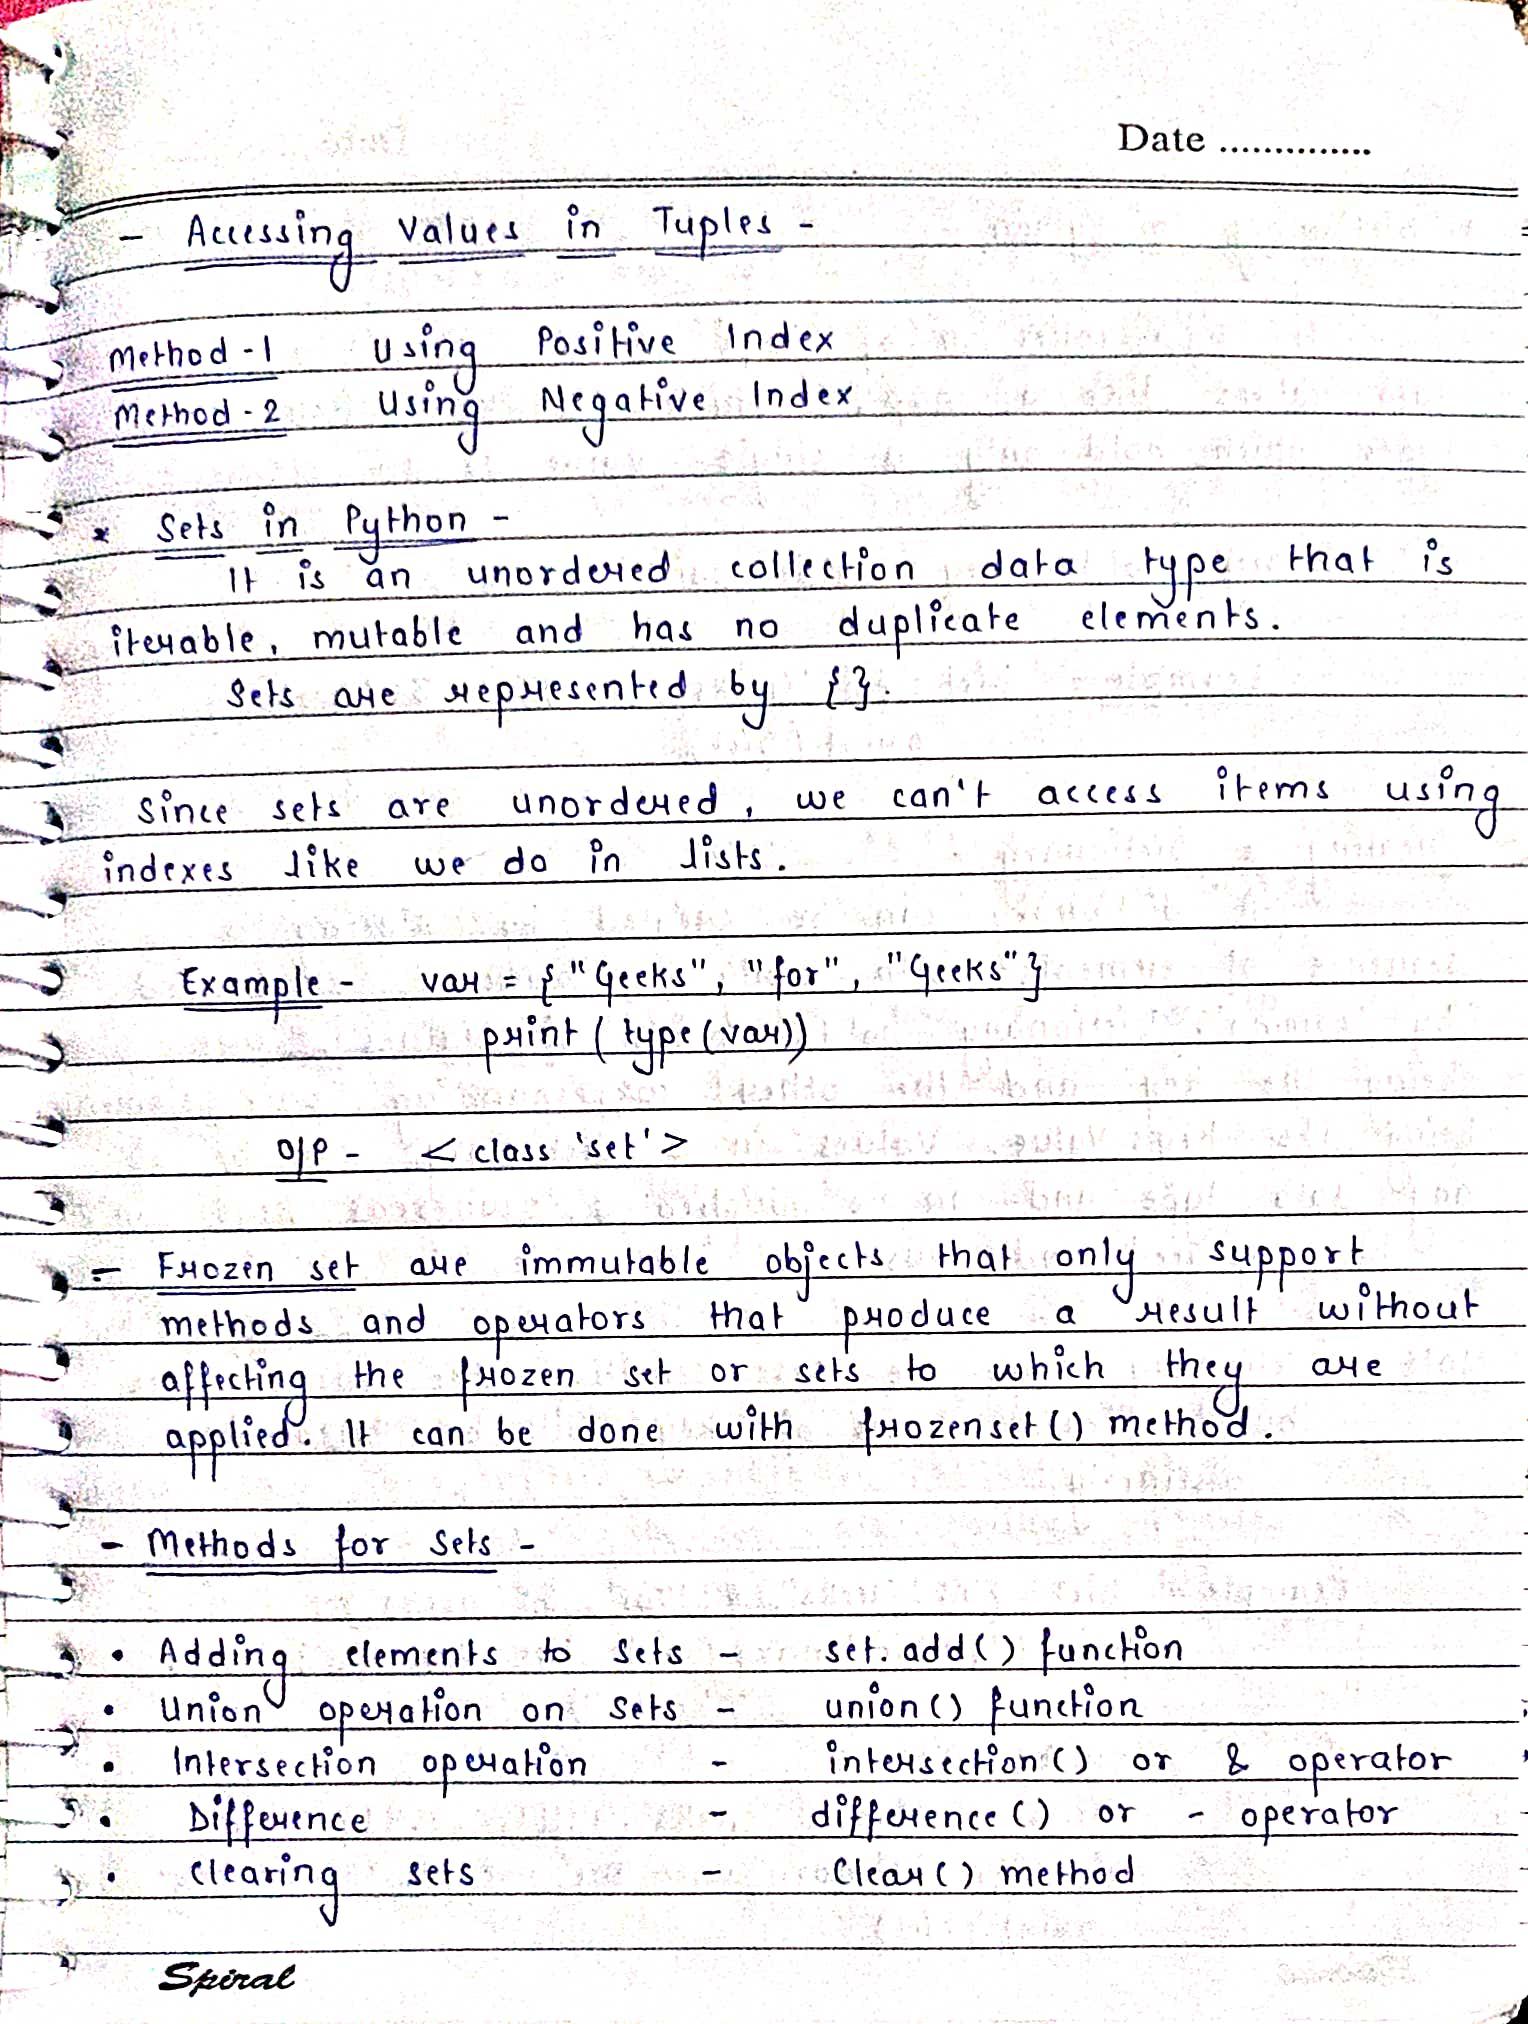 Date ..............
- Accessing Values in Tuples -
Method - 1 Using Positive Index
Method - 2 Using Negative Index
* Sets in Python -
It is an unordered collection data type that is
iterable, mutable and has no duplicate elements.
Sets are represented by { }.
Since sets are unordered, we can't access items using
indexes like we do in lists.
Example - var = { "Geeks", "for", "Geeks" }
print ( type (var))
O/P - < class 'set' >
- Frozen set are immutable objects that only support
methods and operators that produce a result without
affecting the frozen set or sets to which they are
applied. It can be done with frozenset () method.
- Methods for Sets -
• Adding elements to Sets - set. add() function
• Union operation on Sets - union () function
• Intersection operation - intersection () or & operator
• Difference - difference () or - operator
• Clearing sets - Clear () method
Spiral